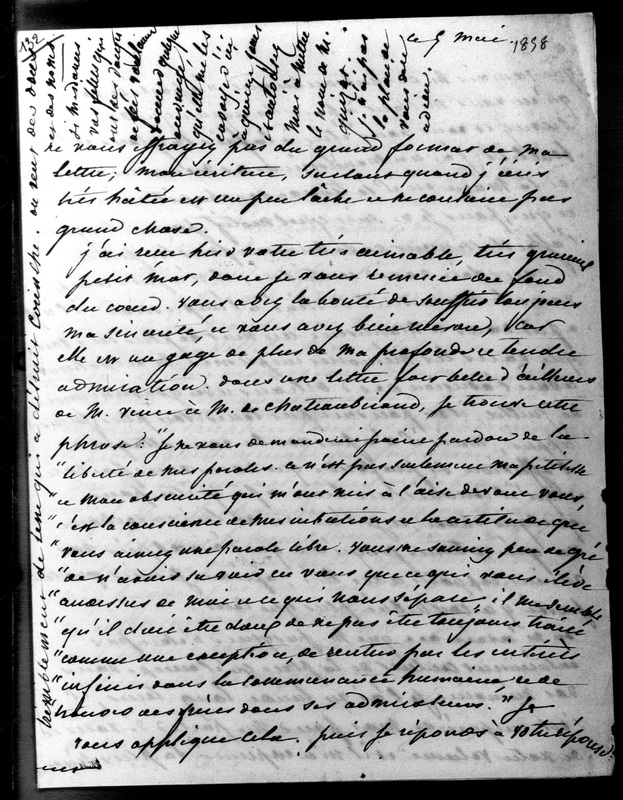 ce 5 mai 1858
ne vous effrayez pas du grand format de ma
lettre; mon écriture, surtout quand j'écris
très hâtée est un peu lâche et ne contient pas
grand chose.
j'ai reçu hier votre très aimable, très gracieux
petit mot, dont je vous remercie du fond
du coeur. vous avez la bonté de souffrir toujours
ma sincérité, et vous avez bien raison, car
elle est un gage de plus de ma profonde et tendre
admiration. dans une lettre fort belle d'ailleurs
de M. Vinet à M. de Chateaubriand, je trouve cette
phrase: "je ne vous demande ni faveur pardon de la
"liberté de mes paroles. ce n'est pas seulement ma petitesse
"et mon obscurité qui m'ont mis à l'aise devant vous,
"c'est la conscience de mes intentions et la certitude que
"vous aimez une parole libre. vous me sauriez peu de gré
"de n'avoir su voir en vous que ce qui vous élève
"au dessus de moi et ce qui nous sépare. il me semble
"qu'il doit être doux de ne pas être toujours traité
"comme une exception, de rentrer par les intérêts
"infinis dans la communauté humaine, et de
trouver des frères dans ses admirateurs." Je
vous applique cela. puis je réponds à votre réponse.
si madame
donner
qu'elle me les
envoye d'ici
à quinze jours
mais à mettre
le nom de M.
guizot.
je n'ai pas
la place de
vous dire
adieu.
tremblement de terre qui a détruit Corinthe. on veut des dons
et des noms